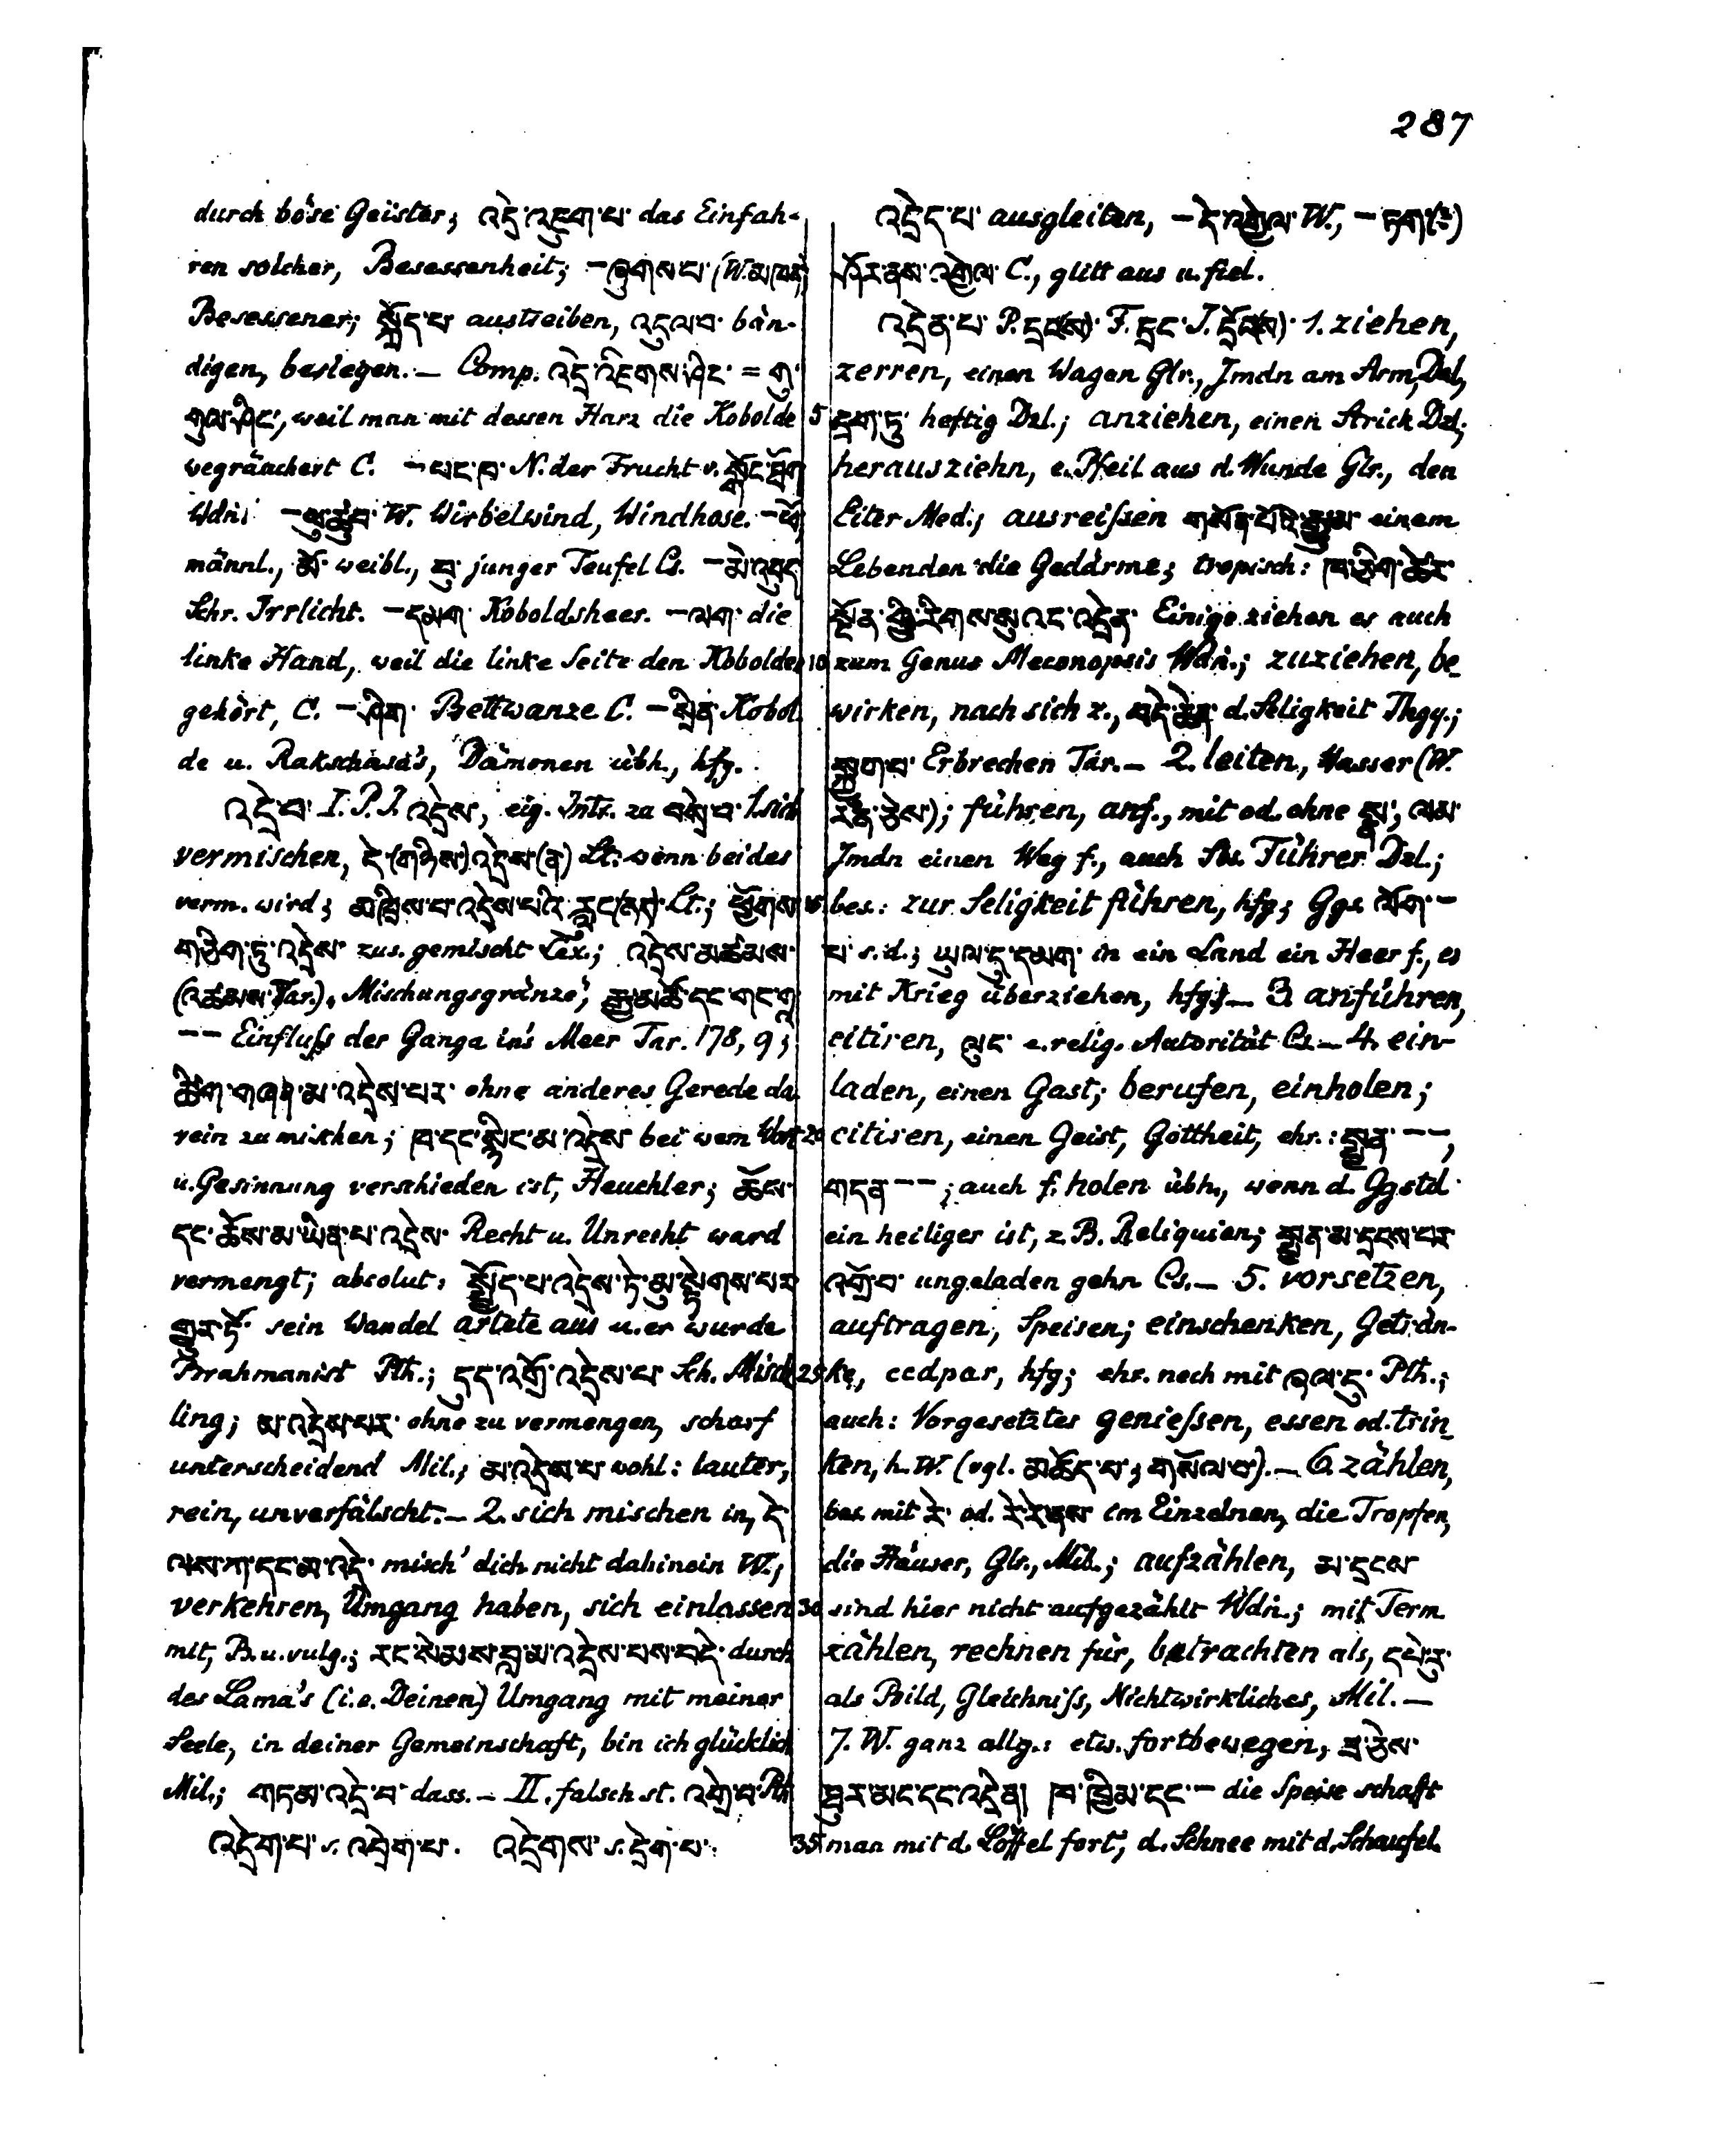 287
durch böse Geister; འདྲེ་འཇུག་པ་ das Einfah-
ren solcher, Besessenheit; –ཞུགས་པ་ (W.
Besessener; སྐྲོད་པ་ austreiben, འདུལ་བ་ bän-
digen, besiegen. – Comp. འདྲེ་འཇིགས་ཤིང་ = གུ་
གུལ་ཤིང་, weil man mit dessen Harz die Kobolde
wegräuchert C. – N. der Frucht v.
Wdn. – W. Wirbelwind, Windhose. –ཕོ,
männl., མོ་ weibl., བུ་ junger Teufel Cs. –མེ་འབུད
Schr. Irrlicht. –དམག Koboldsheer. –ལག་ die
linke Hand, weil die linke Seite den Kobolden
gehört, C. –ཤིག་ Bettwanze C. –སྲིན་ Kobol
de u. Rakschasa's, Dämonen übh., hfg.
འདྲེ་བ་ I. P. J. འདྲེས, eig. Intr. zu བསྲེ་བ་ 1. sich
vermischen, དེ་(གཉིས་)འདྲེས་(ན) Lt.: wenn beides
verm. wird; མཁྲིས་པ་འདྲེས་པའི་རླུང་ Lt.; ཕྱོགས་
གཅིག་ཏུ་འདྲེས་ zus. gemischt Lex.; འདྲེས་མཚམས་
(འཚམས་ Tar.), Mischungsgränze', རྒྱ་མཚོ་དང་གང་གཱ
–– Einfluss der Ganga in's Meer Tar. 178, 9;
ཚིག་གཞན་མ་འདྲེས་པར་ ohne anderes Gerede da
rein zu mischen; ཁ་དང་སྙིང་མ་འདྲེས་ bei wem Wort
u. Gesinnung verschieden ist, Heuchler; ཆོས་
དང་ཆོས་མ་ཡིན་པ་འདྲེས་ Recht u. Unrecht ward
vermengt; absolut: སྤྱོད་པ་འདྲེས་ཏེ་མུ་སྟེགས་པར
གྱུར་ཏོ་ sein Wandel artete aus u. er wurde
Brahmanist Pth.; དུད་འགྲོ་འདྲེས་པ་ Sch. Misch
ling; མ་འདྲེས་པར་ ohne zu vermengen, scharf
unterscheidend Mil.; མ་འདྲེས་པ wohl: lauter,
rein, unverfälscht. – 2. sich mischen in, དེ་
ལས་ཀ་དང་མ་འདྲེ་ misch' dich nicht dahinein W.;
verkehren, Umgang haben, sich einlassen
mit, B. u. vulg.; རང་སེམས་བླ་མ་འདྲེས་པས་བདེ་ durch
des Lama's (i.e. Deinen) Umgang mit meiner
Seele, in deiner Gemeinschaft, bin ich glücklich
Mil.; གཏམ་འདྲེ་བ་ dass. – II. falsch st. འགྲེ་བ་ Pth
འདྲེག་པ་ s. འབྲེག་པ་. འདྲེགས་ s. དྲེག་པ་.
འདྲེད་པ་ ausgleiten, –དེ་འགྱེལ་ W., –
ཤོར་ནས་འགྱེལ་ C., glitt aus u. fiel.
འདྲེན་པ་ P. དྲངས F. དྲང་ J. 1. ziehen,
zerren, einen Wagen Glr., Jmdn am Arm, Dzl.,
5 དྲག་ཏུ་ heftig Dzl.; anziehen, einen Strick Dzl.;
herausziehn, e. Pfeil aus d. Wunde Glr., den
Eiter Med.; ausreissen གསོན་པོའི་རྒྱུ་མ་ einem
Lebenden die Gedärme; tropisch: ཁ་ཅིག་ཚེར་
སྔོན་གྱི་རིགས་སུ་འང་འདྲེན་ Einige ziehen es auch
10 zum Genus Meconopsis Wdn.; zuziehen, be
wirken, nach sich z., བདེ་ཆེན་ d. Seligkeit Thgy.;
སྐྱུག་པ་ Erbrechen Tar. – 2. leiten, Wasser (W.
); führen, anf., mit od. ohne སྣ་; ལམ་
Jmdn einen Weg f., auch Sbs. Führer Dzl.;
15 bes.: zur Seligkeit führen, hfg; Ggs. ལོག་–
པ་ s. d.; ཡུལ་དུ་དམག་ in ein Land ein Heer f., es
mit Krieg überziehen, hfg. – 3. anführen,
citiren, ལུང་ e. relig. Autorität Cs. – 4. ein-
laden, einen Gast; berufen, einholen;
20 citiren, einen Geist, Gottheit, ehr.: སྤྱན་ ––,
གདན་ ––; auch f. holen übh., wenn d. Ggstd
ein heiliger ist, z. B. Reliquien; སྤྱན་མ་དྲངས་པར་
འགྲོ་བ་ ungeladen gehn Cs. – 5. vorsetzen,
auftragen, Speisen; einschenken, Geträn-
25 ke, ccdpar, hfg; ehr. noch mit ཞལ་དུ་ Pth.;
auch: Vorgesetztes geniessen, essen od. trin
ken, h. W. (vgl. མཆོད་པ་; གསོལ་བ་). – 6. zählen,
bes. mit རེ་ od. རེ་རེ་ནས་ im Einzelnen, die Tropfen,
die Häuser, Glr., Mil.; aufzählen, མ་དྲངས
30 sind hier nicht aufgezählt Wdn.; mit Term.
zählen, rechnen für, betrachten als, དཔེ་རུ་
als Bild, Gleichniss, Nichtwirkliches, Mil. –
7. W. ganz allg.: etw. fortbewegen, ཟ་ཅེས་
ཐུར་མང་དང་འདྲེན། ཁ་ཁྱེམ་དང་– die Speise schafft
35 man mit d. Löffel fort, d. Schnee mit d. Schaufel.